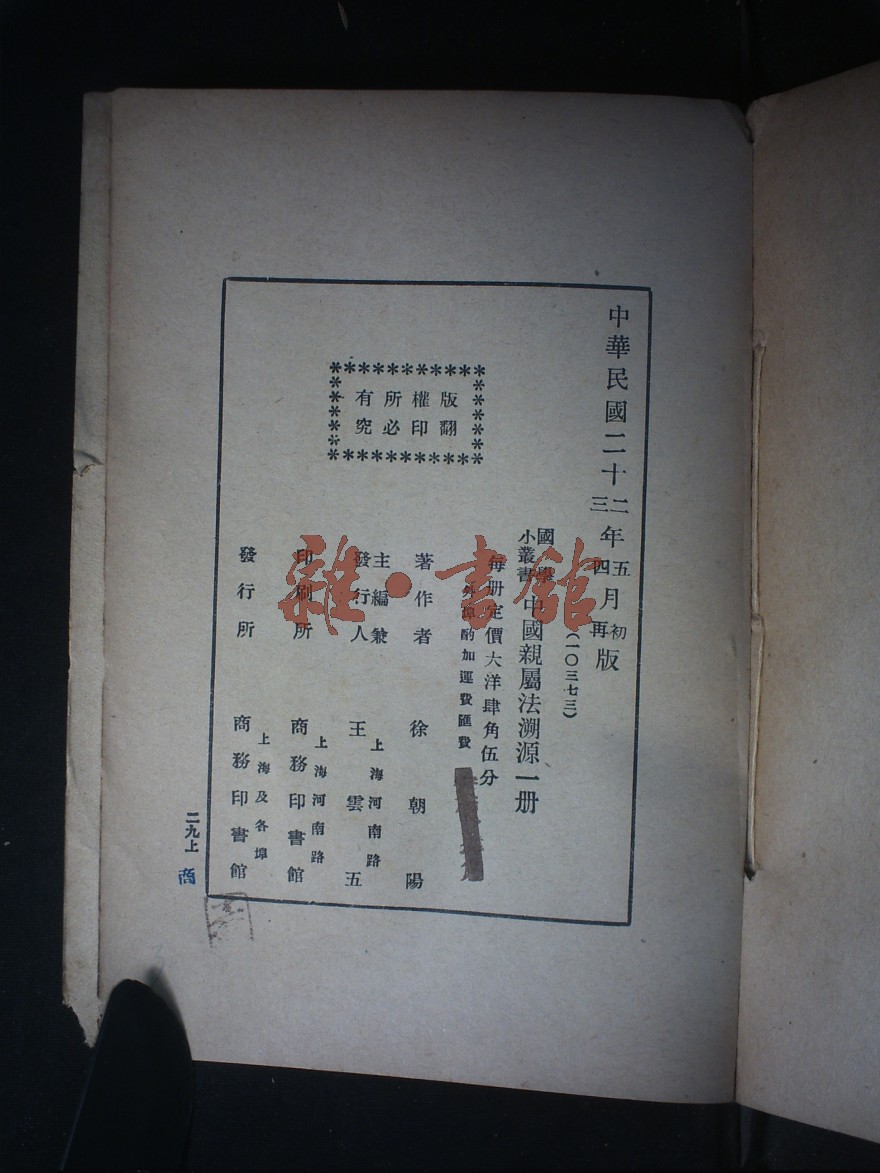 中華民國二十二年五月初版
三四再
(一〇三七三)
國學
小叢書
中國親屬法溯源一册
每册定價大洋肆角伍分
外埠酌加運費匯費
著作者 徐朝陽
主編兼
發行人 王雲五
上海河南路
印刷所 商務印書館
上海河南路
發行所 商務印書館
上海及各埠
版權所有
翻印必究
二九上
商
雜·書館